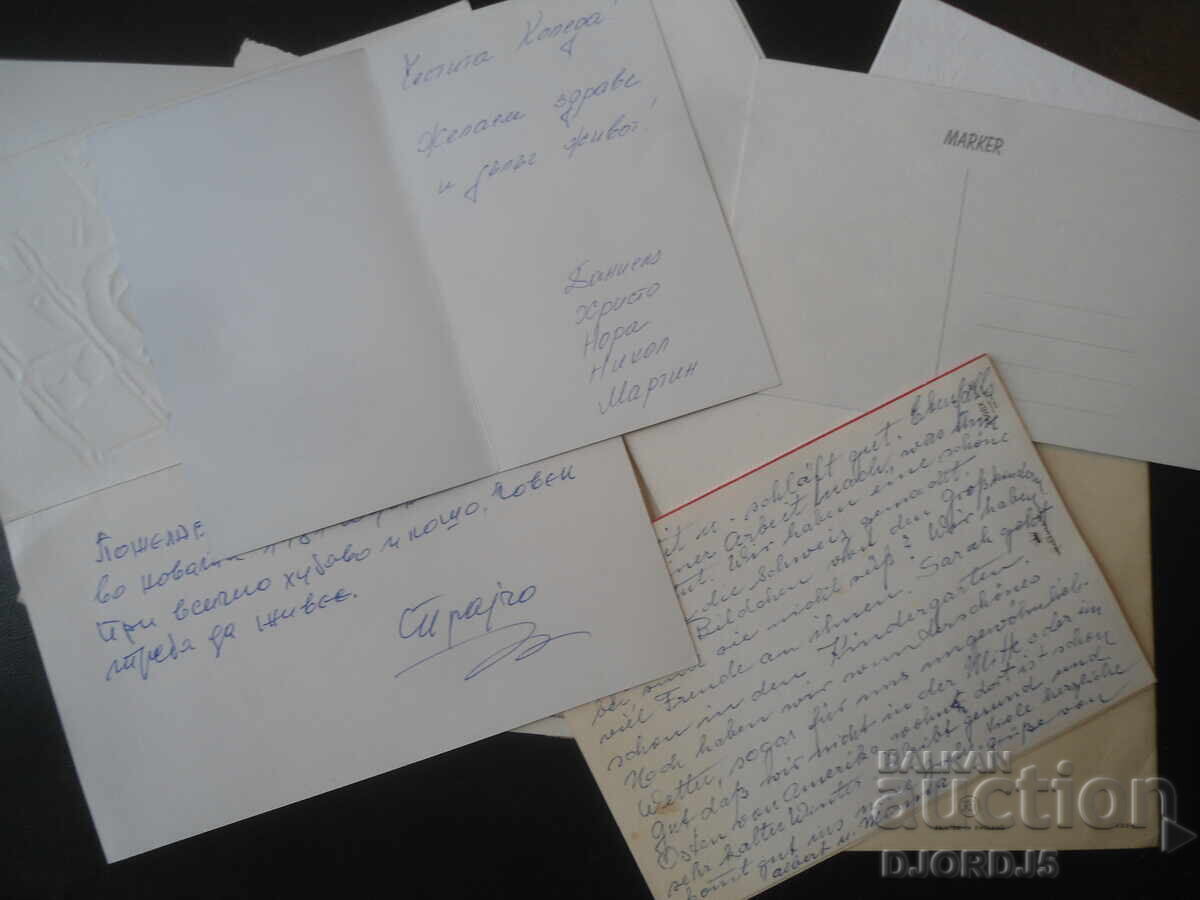 Честита Коледа!
Желаем здраве
и дълъг живот!
Даниела
Христо
Нора
Никол
Мартин
MARKER
Пожелае
во новата
При всичко хубаво и лошо, човек
требя да живее.
Трајчо
it u. schläft gut. Ebenfalls
Arbeit nach, was ihm
Wir haben eine schöne
die Schweiz gemacht.
Bildchen von den Großkindern
sie nicht süß? Wir haben
viel Freude an ihnen. Sarah geht
schon in den Kindergarten.
Noch haben wir wunderschönes
Wetter, sogar für uns ungewöhnlich.
Gut daß wir nicht in der Mitte oder im
Osten von Amerika wohnen, dort ist schon
sehr kalter Winter. Bleibt gesund und
Viele herzliche
Grüße von
Albert u.
BALKAN
auction
DJORDJ5